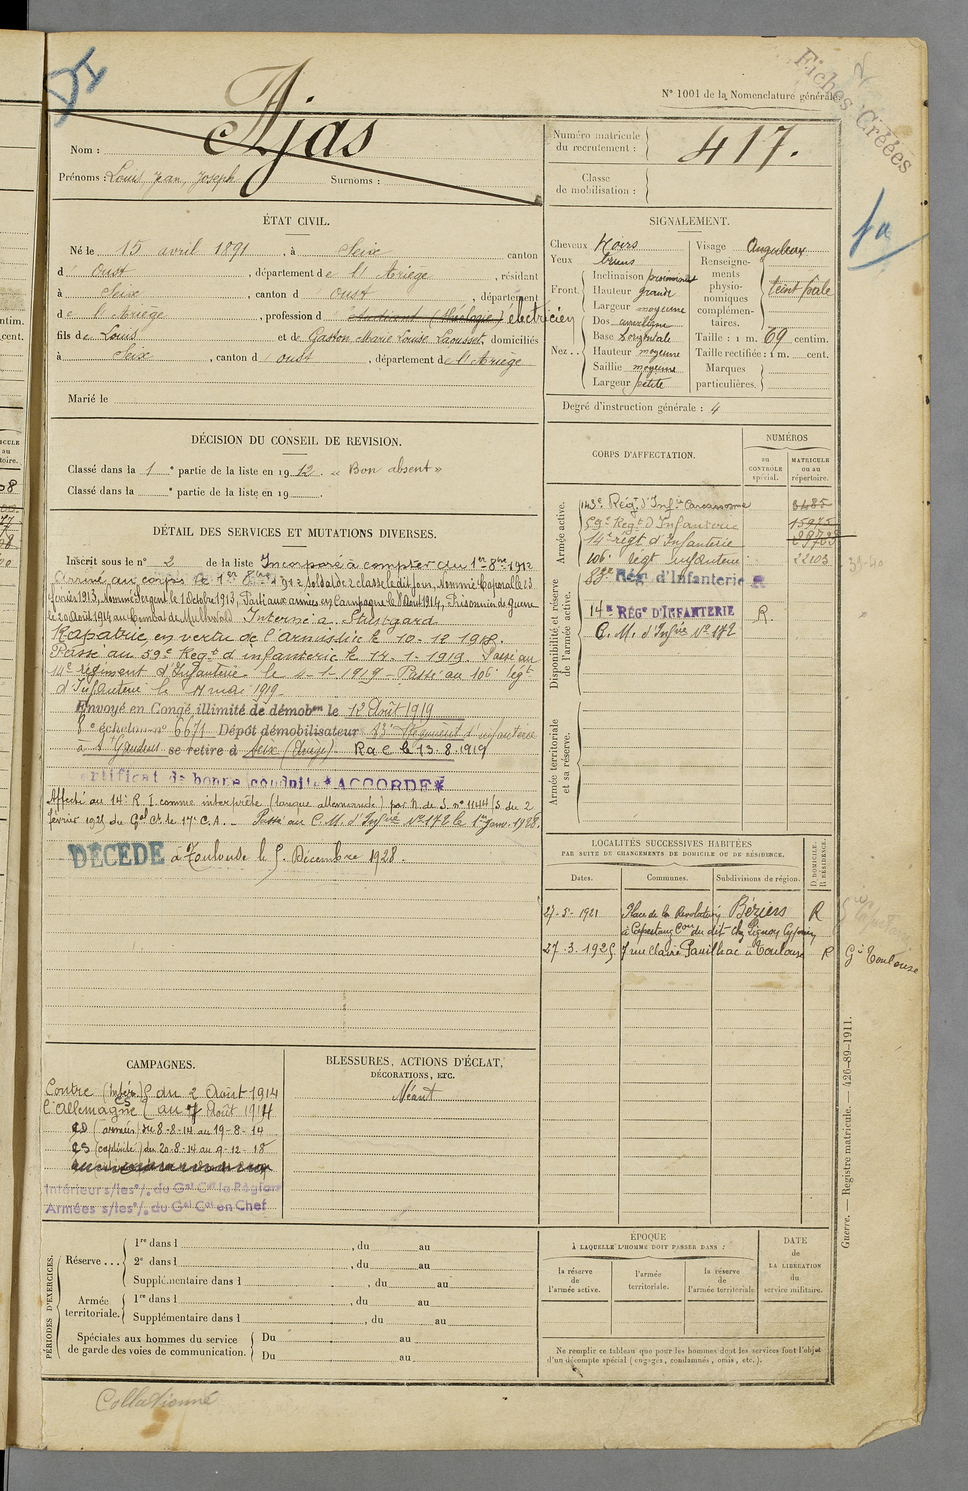 N° 1001 de la Nomenclature générale
Fiches Créées
Ajas
Nom :
Prénoms : Louis, Jean, Joseph Surnoms :
Numéro matricule du recrutement : 417.
Classe de mobilisation :
ÉTAT CIVIL.
Né le 15 avril 1891, à Seix canton
d' Oust, département de l'Ariège, résidant
à Seix, canton d' Oust, département
de l'Ariège, profession d' Etudiant (théologie) électricien
fils de Louis et de Gaston Marie Louise Laousset, domiciliés
à Seix, canton d' Oust, département de l'Ariège
Marié le
SIGNALEMENT.
Cheveux Noirs
Yeux bruns
Front
Inclinaison proéminent
Hauteur grande
Largeur moyenne
Nez
Dos curviligne
Base horizontale
Hauteur moyenne
Saillie moyenne
Largeur petite
Visage Anguleux
Renseignements physionomiques complémentaires. teint pâle
Taille : 1 m. 69 centim.
Taille rectifiée : 1 m. cent.
Marques particulières.
Degré d'instruction générale : 4
DÉCISION DU CONSEIL DE REVISION.
Classé dans la 1e partie de la liste en 1912. « Bon absent »
Classé dans la e partie de la liste en 19 .
CORPS D'AFFECTATION.
NUMÉROS
au CONTRÔLE spécial.
MATRICULE ou au répertoire.
Armée active.
143e Régt d'Infie Carcassonne 3485
59e Regt d'Infanterie 15975
14e régt d'Infanterie
106e régt infanterie 22103
Disponibilité et réserve de l'armée active.
83e Rég. d'Infanterie R
14e RÉGt D'INFANTERIE R.
C. M. d'Infie N° 172
Armée territoriale et sa réserve.
DÉTAIL DES SERVICES ET MUTATIONS DIVERSES.
Inscrit sous le n° 2 de la liste Incorporé à compter du 1er 8bre 1912
Arrivé au corps le 1er 8bre 1912 soldat de 2e classe le dit jour, Nommé Caporal le 23
février 1913, Nommé Sergent le 1 Octobre 1913, Parti aux armées en Campagne le 8 Août 1914, Prisonnier de guerre
le 20 Août 1914 au Combat de Mulhwald Interné à Stuttgard
Rapatrié en vertu de l'Armistice le 10-12-1918.
Passé au 59e Regt d'infanterie le 14-1-1919. Passé au
14e régiment d'Infanterie le 4-1-1919 - Passé au 106e régt
d'Infanterie le 11 mai 1919
Envoyé en Congé illimité de démobon le 12 Août 1919
8e échelon n° 6671 Dépôt démobilisateur 83e Régiment d'infanterie
à St Gaudens se retire à Seix (Ariège) R a C le 13-8-1919
Certificat de bonne conduite *ACCORDÉ*
Affecté au 14e R. I. comme interprète (langue allemande) par N. de S. n° 1144/S du 2
février 1925 du Gal Ct le 17e C.A. - Passé au C.M. d'Infie N° 172 le 1er Janv. 1928.
DÉCÉDÉ à Toulouse le 5 Décembre 1928.
LOCALITÉS SUCCESSIVES HABITÉES
PAR SUITE DE CHANGEMENTS DE DOMICILE OU DE RÉSIDENCE.
Dates. Communes. Subdivisions de région. D. DOMICILE. R. RÉSIDENCE.
27-5-1921 Place de la Revolution Béziers R
à Capestang
27-3-1925 7 rue Claire Pauilhac à Toulouse R Gé Toulouse
CAMPAGNES.
Contre l'Allemagne (Intér.) du 2 Août 1914
au 7 Août 1914
(armées) du 8-8-14 au 19-8-14
(captivité) du 20-8-14 au 9-12-18
Intérieur s/les o/. du Gal Ct la Région
Armées s/les o/. du Gal Ct en Chef
BLESSURES, ACTIONS D'ÉCLAT,
DÉCORATIONS, ETC.
Néant
PÉRIODES D'EXERCICES.
Réserve ...
1re dans l , du au
2e dans l , du au
Supplémentaire dans l , du au
Armée territoriale.
1re dans l , du au
Supplémentaire dans l , du au
Spéciales aux hommes du service de garde des voies de communication.
Du au
Du au
ÉPOQUE
À LAQUELLE L'HOMME DOIT PASSER DANS :
la réserve de l'armée active.
l'armée territoriale.
la réserve de l'armée territoriale
DATE de LA LIBÉRATION du service militaire.
Ne remplir ce tableau que pour les hommes dont les services font l'objet
d'un décompte spécial (engagés, condamnés, omis, etc.).
Guerre. — Registre matricule. — 426-89-1911.
Collationné